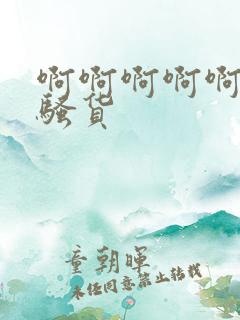 啊啊啊啊啊
骚货
童朝晖
未经同意禁止转载